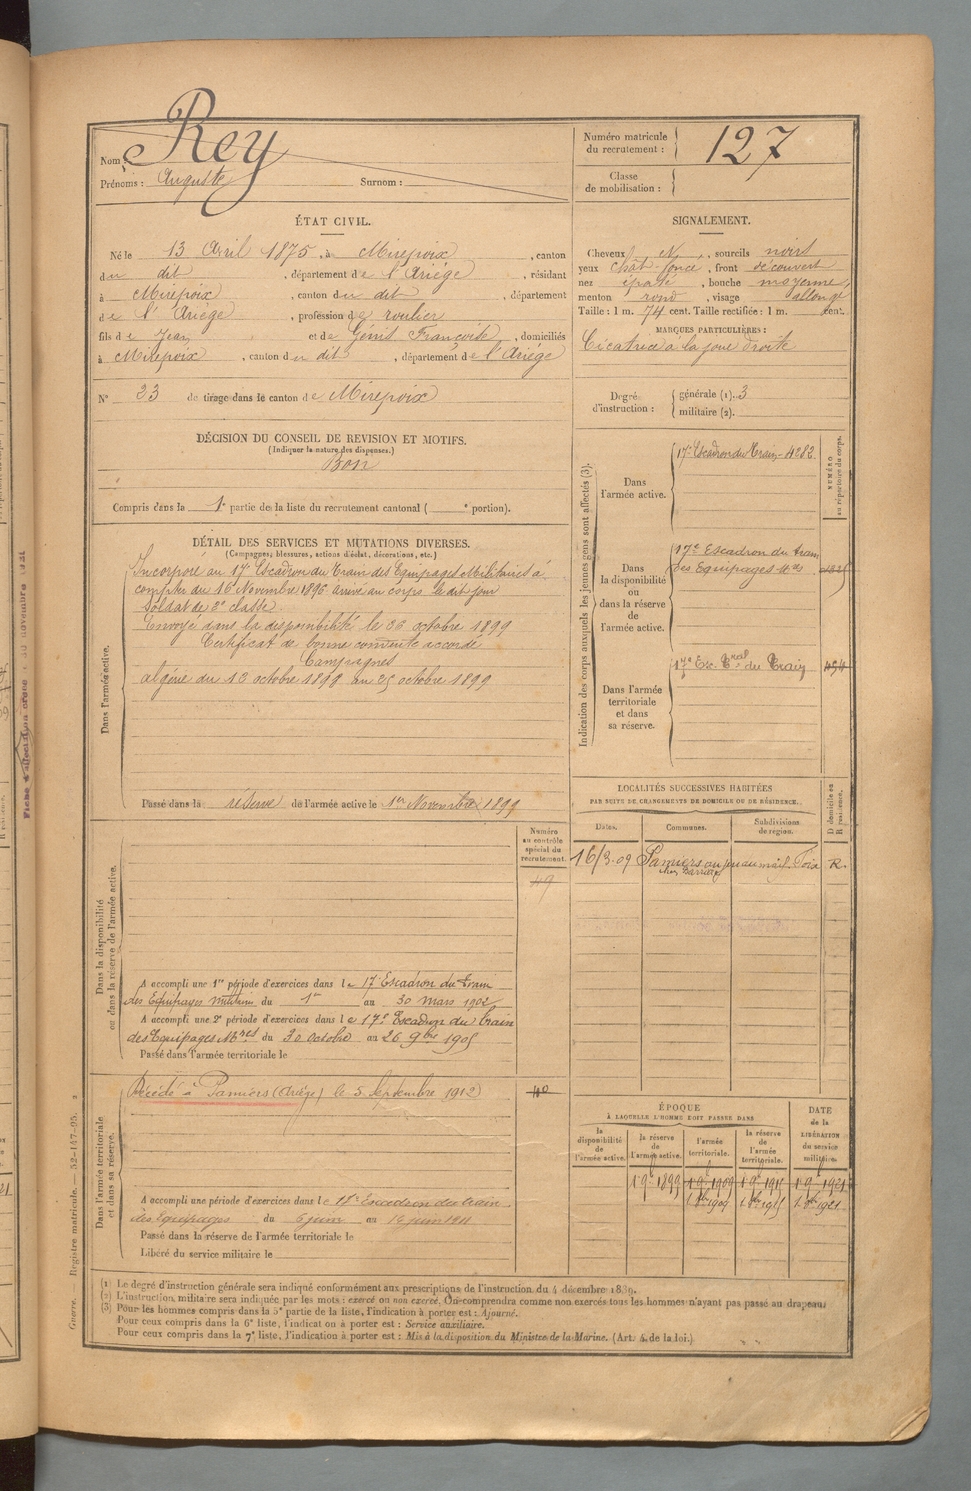 Nom : Rey
Prénoms : Auguste Surnom :
Numéro matricule du recrutement : 127
Classe de mobilisation :
ÉTAT CIVIL.
Né le 13 Avril 1875, à Mirepoix, canton
du dit, département de l'Ariège, résidant
à Mirepoix, canton du dit, département
de l'Ariège, profession de roulier
fils de Jean et de Génit Françoise, domiciliés
à Mirepoix, canton du dit, département de l'Ariège
N° 23 de tirage dans le canton de Mirepoix
SIGNALEMENT.
Cheveux N, sourcils noirs
yeux chât-foncé, front découvert
nez épaté, bouche moyenne,
menton rond, visage allongé
Taille : 1 m. 74 cent. Taille rectifiée : 1 m. cent.
MARQUES PARTICULIÈRES :
Cicatrice à la joue droite
Degré d'instruction : générale (1). 3
militaire (2).
DÉCISION DU CONSEIL DE REVISION ET MOTIFS.
(Indiquer la nature des dispenses.)
Bon
Compris dans la 1e partie de la liste du recrutement cantonal ( e portion).
DÉTAIL DES SERVICES ET MUTATIONS DIVERSES.
(Campagnes, blessures, actions d'éclat, décorations, etc.)
Dans l'armée active.
Incorporé au 17e Escadron du Train des Equipages Militaires à
compter du 16 Novembre 1896 arrivé au corps le dit jour
Soldat de 2e classe
Envoyé dans la disponibilité le 26 octobre 1899
Certificat de bonne conduite accordé
Campagnes
algérie du 12 octobre 1899 au 25 octobre 1899
Passé dans la réserve de l'armée active le 1er Novembre 1899
Indication des corps auxquels les jeunes gens sont affectés (3).
NUMÉRO au répertoire du corps.
Dans l'armée active.
17e Escadron du Train 4282
Dans la disponibilité ou dans la réserve de l'armée active.
17e Escadron du train
des Equipages Mres
Dans l'armée territoriale et dans sa réserve.
17e Esc. Tral du Train
LOCALITÉS SUCCESSIVES HABITÉES
PAR SUITE DE CHANGEMENTS DE DOMICILE OU DE RÉSIDENCE.
Dates. Communes. Subdivisions de région. D domicile ou R résidence.
16/3-09 Pamiers au jeu au mail Foix R.
chez Barrière
Dans la disponibilité ou dans la réserve de l'armée active.
Numéro au contrôle spécial du recrutement.
49
A accompli une 1re période d'exercices dans le 17e Escadron du train
des Equipages militaires du 1er au 30 mars 1902
A accompli une 2e période d'exercices dans le 17e Escadron du train
des Equipages Mres du 30 octobre au 26 9bre 1905
Passé dans l'armée territoriale le
Dans l'armée territoriale et dans sa réserve.
Décédé à Pamiers (Ariège) le 5 Septembre 1912
A accompli une période d'exercices dans le Escadron du train
des Equipages du 6 juin au juin 1911
Passé dans la réserve de l'armée territoriale le
Libéré du service militaire le
ÉPOQUE
À LAQUELLE L'HOMME DOIT PASSER DANS
DATE de la LIBÉRATION du service militaire.
la disponibilité de l'armée active. la réserve de l'armée active. l'armée territoriale. la réserve de l'armée territoriale.
1 9e 1899 1 9e 1909 1 9e 1915 1 9e 1921
1 8bre 1909 1 8bre 1915 1 8bre 1921
(1) Le degré d'instruction générale sera indiqué conformément aux prescriptions de l'instruction du 4 décembre 1889.
(2) L'instruction militaire sera indiquée par les mots : exercé ou non exercé. On comprendra comme non exercés tous les hommes n'ayant pas passé au drapeau;
(3) Pour les hommes compris dans la 5e partie de la liste, l'indication à porter est : Ajourné.
Pour ceux compris dans la 6e liste, l'indication à porter est : Service auxiliaire.
Pour ceux compris dans la 7e liste, l'indication à porter est : Mis à la disposition du Ministre de la Marine. (Art. 4 de la loi.)
Guerre. Registre matricule. — 52-147-95.